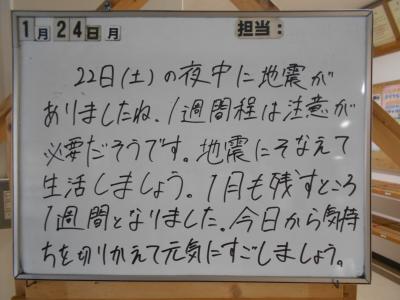 1月24日月 担当:
22日(土)の夜中に地震が
ありましたね、1週間程は注意が
必要だそうです。地震にそなえて
生活しましょう。1月も残すところ
1週間となりました。今日から気持
ちを切りかえて元気にすごしましょう。